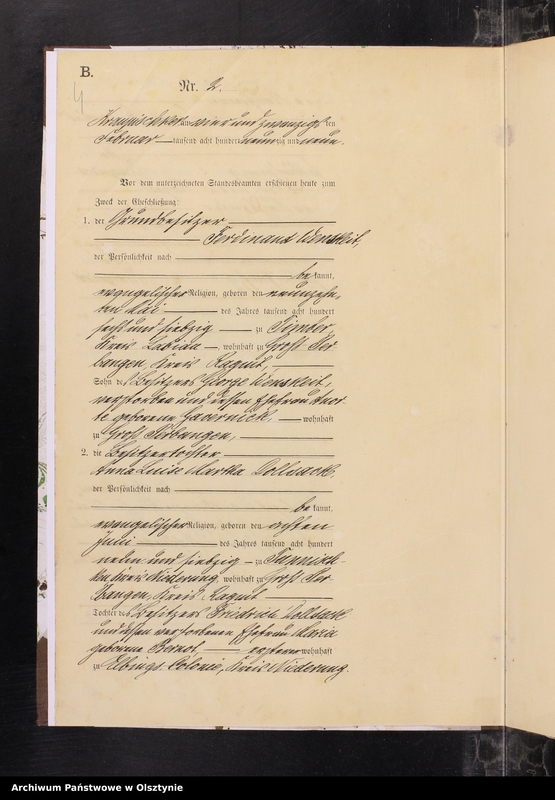 B.
Nr. 2.
4
am vier und zwanzigsten
Februar tausend acht hundert neunzig und neun.
Vor dem unterzeichneten Standesbeamten erschienen heute zum
Zweck der Eheschließung:
1. der Grundbesitzer
Ferdinand Wenskeit,
der Persönlichkeit nach
be kannt,
evangelischer Religion, geboren den neunzehn,
ten Mai des Jahres tausend acht hundert
sechs und siebzig zu Timber,
Kreis Labiau, wohnhaft zu Groß Per
bangen, Kreis Ragnit,
Sohn des Besitzers George Wenskeit,
verstorben und dessen Ehefrau
geborene wohnhaft
zu Groß Perbangen,
2. die Besitzertochter
Anna Luise Martha Dollsack,
der Persönlichkeit nach
be kannt,
evangelischer Religion, geboren den achten
Juni des Jahres tausend acht hundert
neun und siebzig zu
Kreis Niederung, wohnhaft zu Groß Per
bangen, Kreis Ragnit
Tochter des Besitzers Friedrich Dollsack
und dessen verstorbenen Ehefrau Maria
geborene ersterer wohnhaft
zu Elbings Colonie, Kreis Niederung.
Archiwum Państwowe w Olsztynie